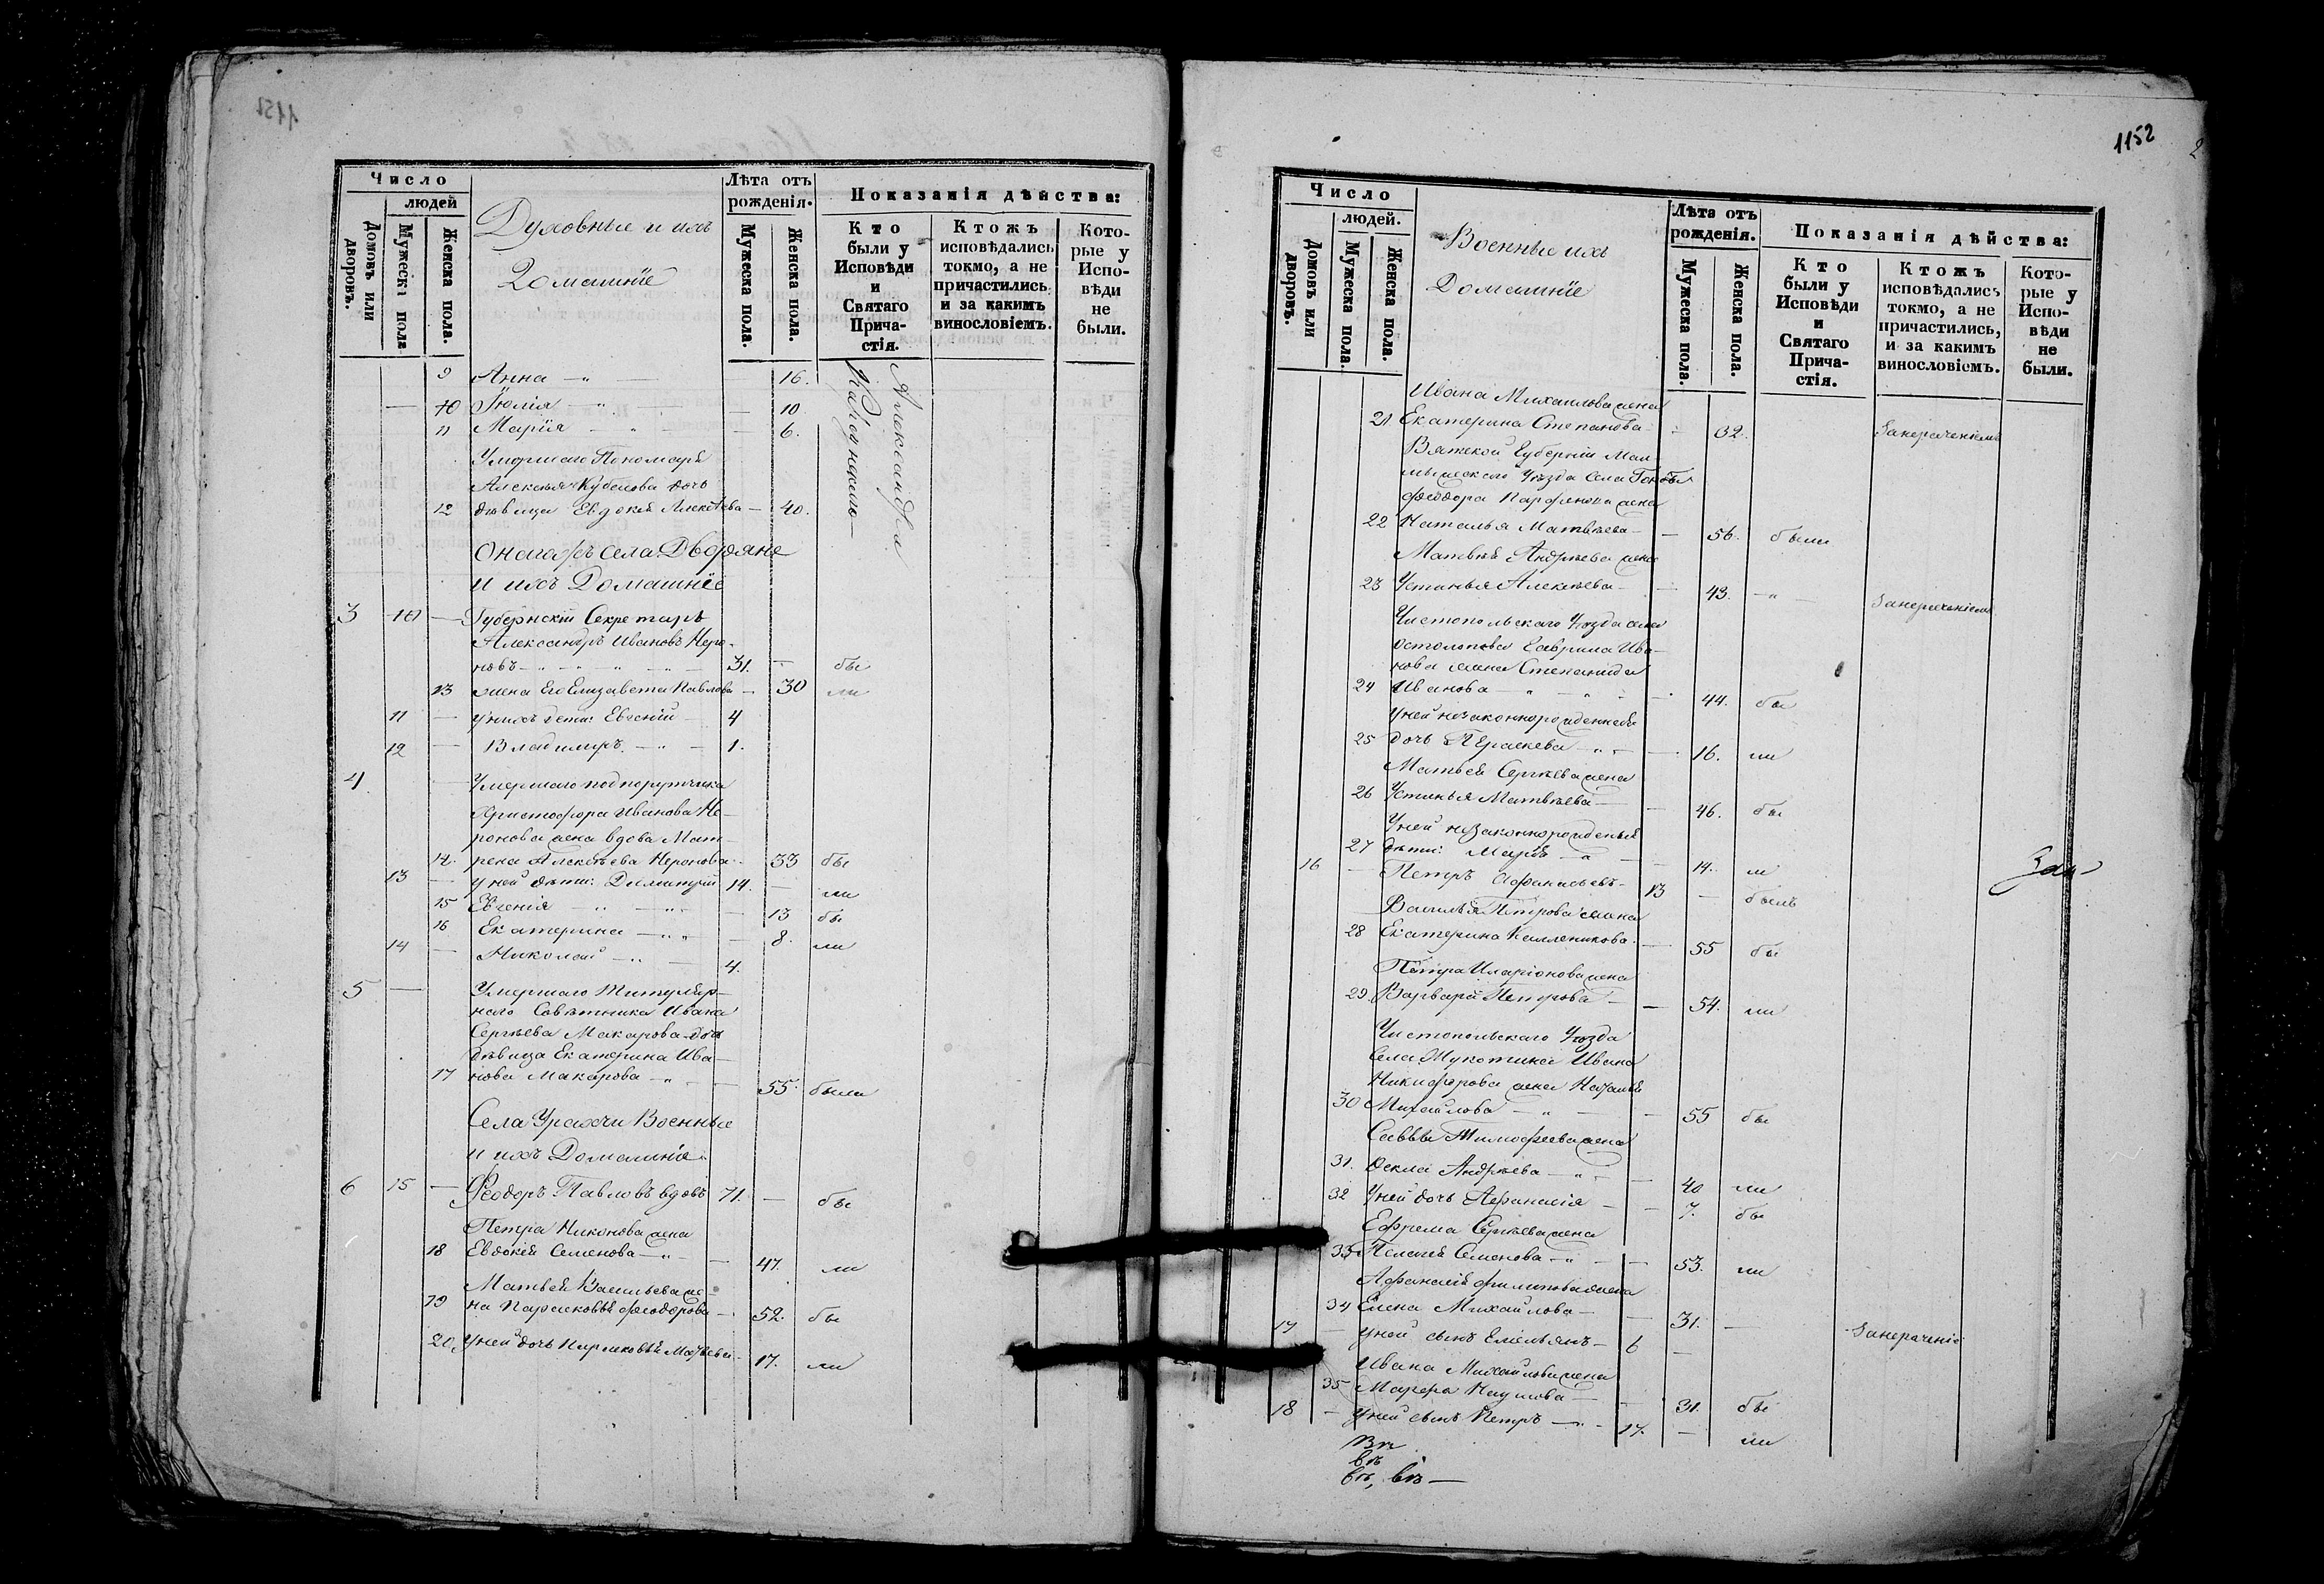 1152
Число
людей
Домовъ или дворовъ.
Мужеска пола
Женска пола.
Духовные и ихъ
Домашніе
Лѣта отъ рожденія.
Мужеска пола.
Женска пола.
Показанія дѣйства:
Кто были у Исповѣди и Святаго Прича-стія.
Ктожъ исповѣдались токмо, а не причастились и за какимъ винословіемъ.
Кото-рые у Испо-вѣди не были.
9 Анна — 16.
10 Юлія — 10
11 Марія — 6.
Александра
Умершаго Пономаря
Алексѣя Кубелова дочь
12 дѣвица Евдокія Алексѣева — 40.
Онагожъ села Дворяне
и ихъ Домашніе
3 10 — Губернскій Секретарь
Александръ Ивановъ Неро-
новъ — 31. — бы
13 жена Его Елизавета Павлова — 30 ли
11 — у нихъ дети: Евгеній — 4
12 — Владимиръ — 1.
4 — Умершаго подпорутчика
Христофора Иванова Не-
ронова жена вдова Мат-
14. рена Алексѣева Неронова — 33 бы
13 — у ней дѣти: Димитрій 14. — ли
15 Евгенія — 13 бы
16 Екатерина — 8. ли
14 — Николай — 4.
5 — Умершаго Титуляр-
наго Совѣтника Ивана
Сергѣева Макарова дочь
дѣвица Екатерина Ива-
17 нова Макарова — 55. была
Села Урахчи Военные
и ихъ Домашніе
6 15 — Феодоръ Павловъ вдовъ 71. — бы
Петра Никонова жена
18 Евдокія Семенова — 47. ли
Матвея Васильева же-
19 на Парасковья Феодорова — 52. бы
20 У ней дочь Парасковья Матвѣева — 17. ли
1152
Число
людей.
Домовъ или дворовъ.
Мужеска пола.
Женска пола.
Военные ихъ
Домашніе
Лѣта отъ рожденія.
Мужеска пола.
Женска пола.
Показанія дѣйства:
Кто были у Исповѣди и Святаго Прича-стія.
Ктожъ исповѣдались токмо, а не причастились, и за какимъ винословіемъ.
Кото-рые у Испо-вѣди не были.
Ивана Михаилова жена
21 Екатерина Степанова — 32.
Вятской Губерніи Мал-
мыжскаго Уѣзда села
Феодора Парфенова жена
22 Наталья Матвѣева — 56. была
Матвѣя Андрѣева жена
23 Устинья Алексѣева — 43. — "
Чистопольскаго Уѣзда села
Остолопова Гаврила Ива-
нова жена Степанида
24 Иванова — 44. бы
У ней незаконнорожденная
25 дочь Параскева — 16. ли
Матвея Сергѣева жена
26 Устинья Матвѣева — 46. бы
У ней незаконнорожденыя
27 дѣти: Марья — 14. ли
16 — Петръ Афанасьевъ — 13 — былъ
Василья Петрова жена
28 Екатерина — 55 бы
Петра Иларіонова жена
29. Варвара Петрова — 54. ли
Чистопольскаго Уѣзда
села Мукотина Ивана
Никифорова жена Наталья
30 Михайлова — 55 бы
Саввы Тимофеева жена
31. Фекла Андрѣева — 40 ли
32 У ней дочь Афанасія — 7. бы
Ефрема Сергѣева жена
33 Пелагея Семенова — 53. ли
Афанасія Филипова жена
34 Елена Михайлова — 31. —
17 — У ней сынъ Емельянъ — 6 —
Ивана Михайлова жена
35 Марфа Наумова — 31. бы
18 — У ней сынъ Петръ — 17. — ли